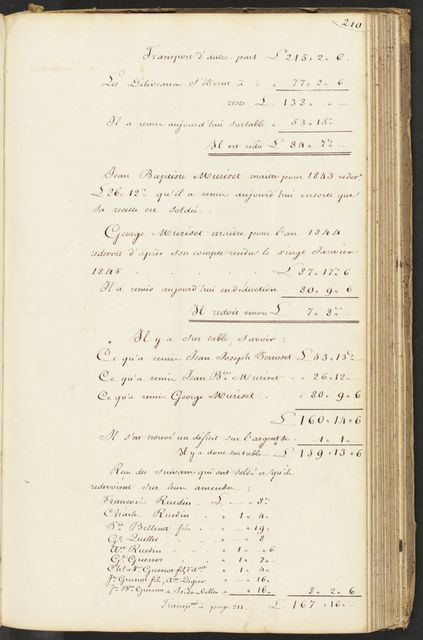 210
Transport d'autre part L 215 " 2 " 6
Les Délivrances s'élèvent à " " 77 " 2 " 6
reste L 138 " " "
Il a remis aujourd'hui sur table " 53 " 15 "
Il est redû L 84 " 7 "
Jean Baptiste Muriset maire pour 1843 redoit
L 26 " 12 " qu'il a remis aujourd'hui ensorte que
sa recette est soldée.
George Muriset maire pour l'an 1844
redevoit d'après son compte rendu le vingt Janvier
1845 . . . . L 87 " 17 " 6
Il a remis aujourd'hui en déduction 80 " 9 " 6
Il redoit encore L 7 " 8 "
Il y a sur table, savoir :
Ce qu'a remis Jean Joseph L 53 " 15 "
Ce qu'a remis Jean Bte Muriset . " 26 " 12 "
Ce qu'a remis George Muriset . " 80 " 9 " 6
L 160 " 14 " 6
Il s'est trouvé un déficit sur l'argent de . 1 " 1 "
Il y a donc sur table L 159 " 13 " 6
Reçu des suivans qui ont soldé ce qu'ils
redevoient sur leurs amendes :
François Ruedin . L " 8 "
Charle Ruedin . . " 1 " 4 "
Bellenot fils . . " " 19 "
Gs Quellet . . " " 8
Ruedin . . " 1 " " 6
Gs Guenot . . " 1 " 7 "
" 1 " 4 "
Js Guenot fils, Digier " " 16 "
" " 16 " 8 " 2 " 6
Transpt à page 211. L 167 " 16 "